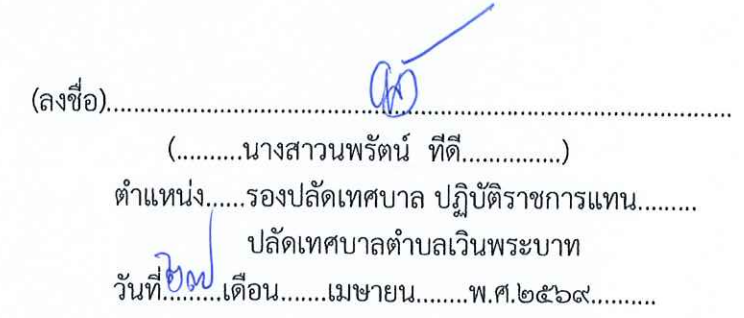 (ลงชื่อ)..........................................................................................
(..........นางสาวนพรัตน์ ทีดี...............)
ตำแหน่ง......รองปลัดเทศบาล ปฏิบัติราชการแทน.........
ปลัดเทศบาลตำบลเวินพระบาท
วันที่...๒๗...เดือน.......เมษายน........พ.ศ.๒๕๖๙..........